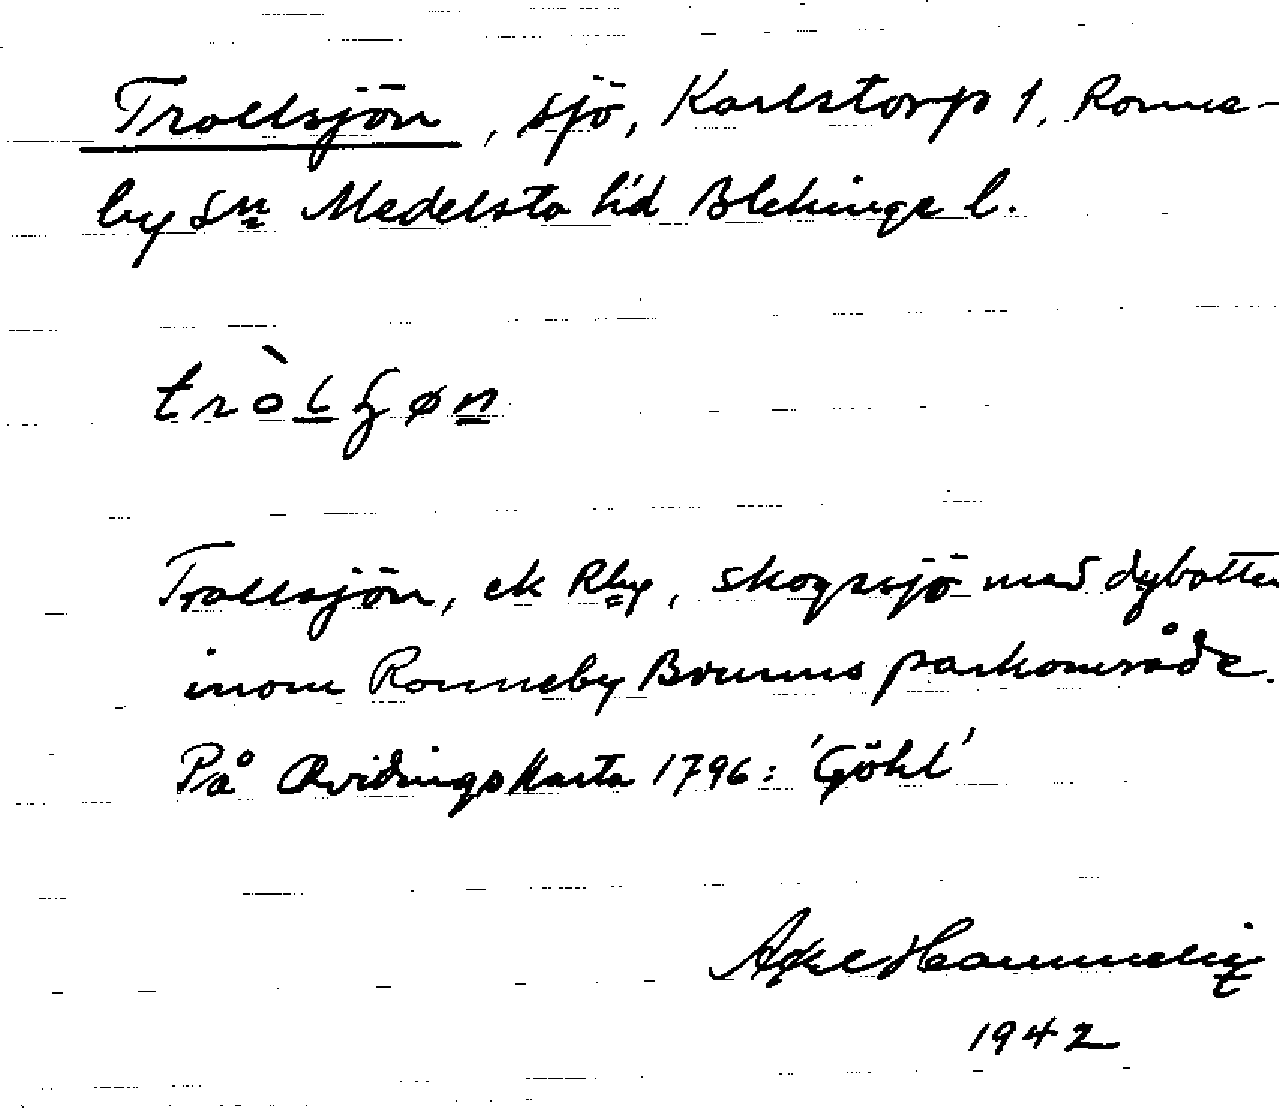 Trollsjön, sjö, Karlstorp 1, Ronne-
by sn Medelsta hd Blekinge l.
tròlʃøn
Trollsjön, ek Rby, skogssjö med dybotten
inom Ronneby Brunns parkområde.
På Qvidingskarta 1796: 'Göhl'
Axel
1942